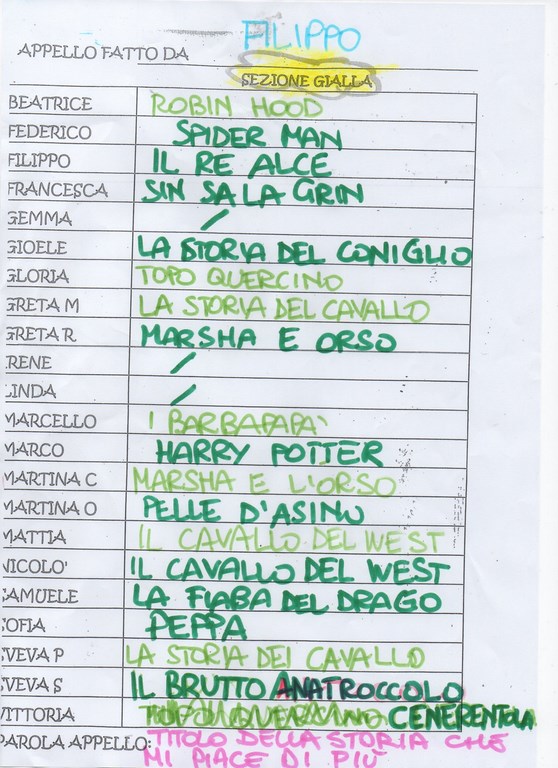 APPELLO FATTO DA FILIPPO
SEZIONE GIALLA
BEATRICE ROBIN HOOD
FEDERICO SPIDER MAN
FILIPPO IL RE ALCE
FRANCESCA SIN SA LA GRIN
GEMMA /
GIOELE LA STORIA DEL CONIGLIO
GLORIA TOPO QUERCINO
GRETA M LA STORIA DEL CAVALLO
GRETA R MARSHA E ORSO
RENE /
LINDA /
MARCELLO I BARBAPAPÀ
MARCO HARRY POTTER
MARTINA C MARSHA E L'ORSO
MARTINA O PELLE D'ASINO
MATTIA IL CAVALLO DEL WEST
NICOLO' IL CAVALLO DEL WEST
SAMUELE LA FIABA DEL DRAGO
SOFIA PEPPA
SVEVA P LA STORIA DEL CAVALLO
SVEVA S IL BRUTTO ANATROCCOLO
VITTORIA TOPO QUERCINO CENERENTOLA
PAROLA APPELLO: TITOLO DELLA STORIA CHE
MI PIACE DI PIÙ